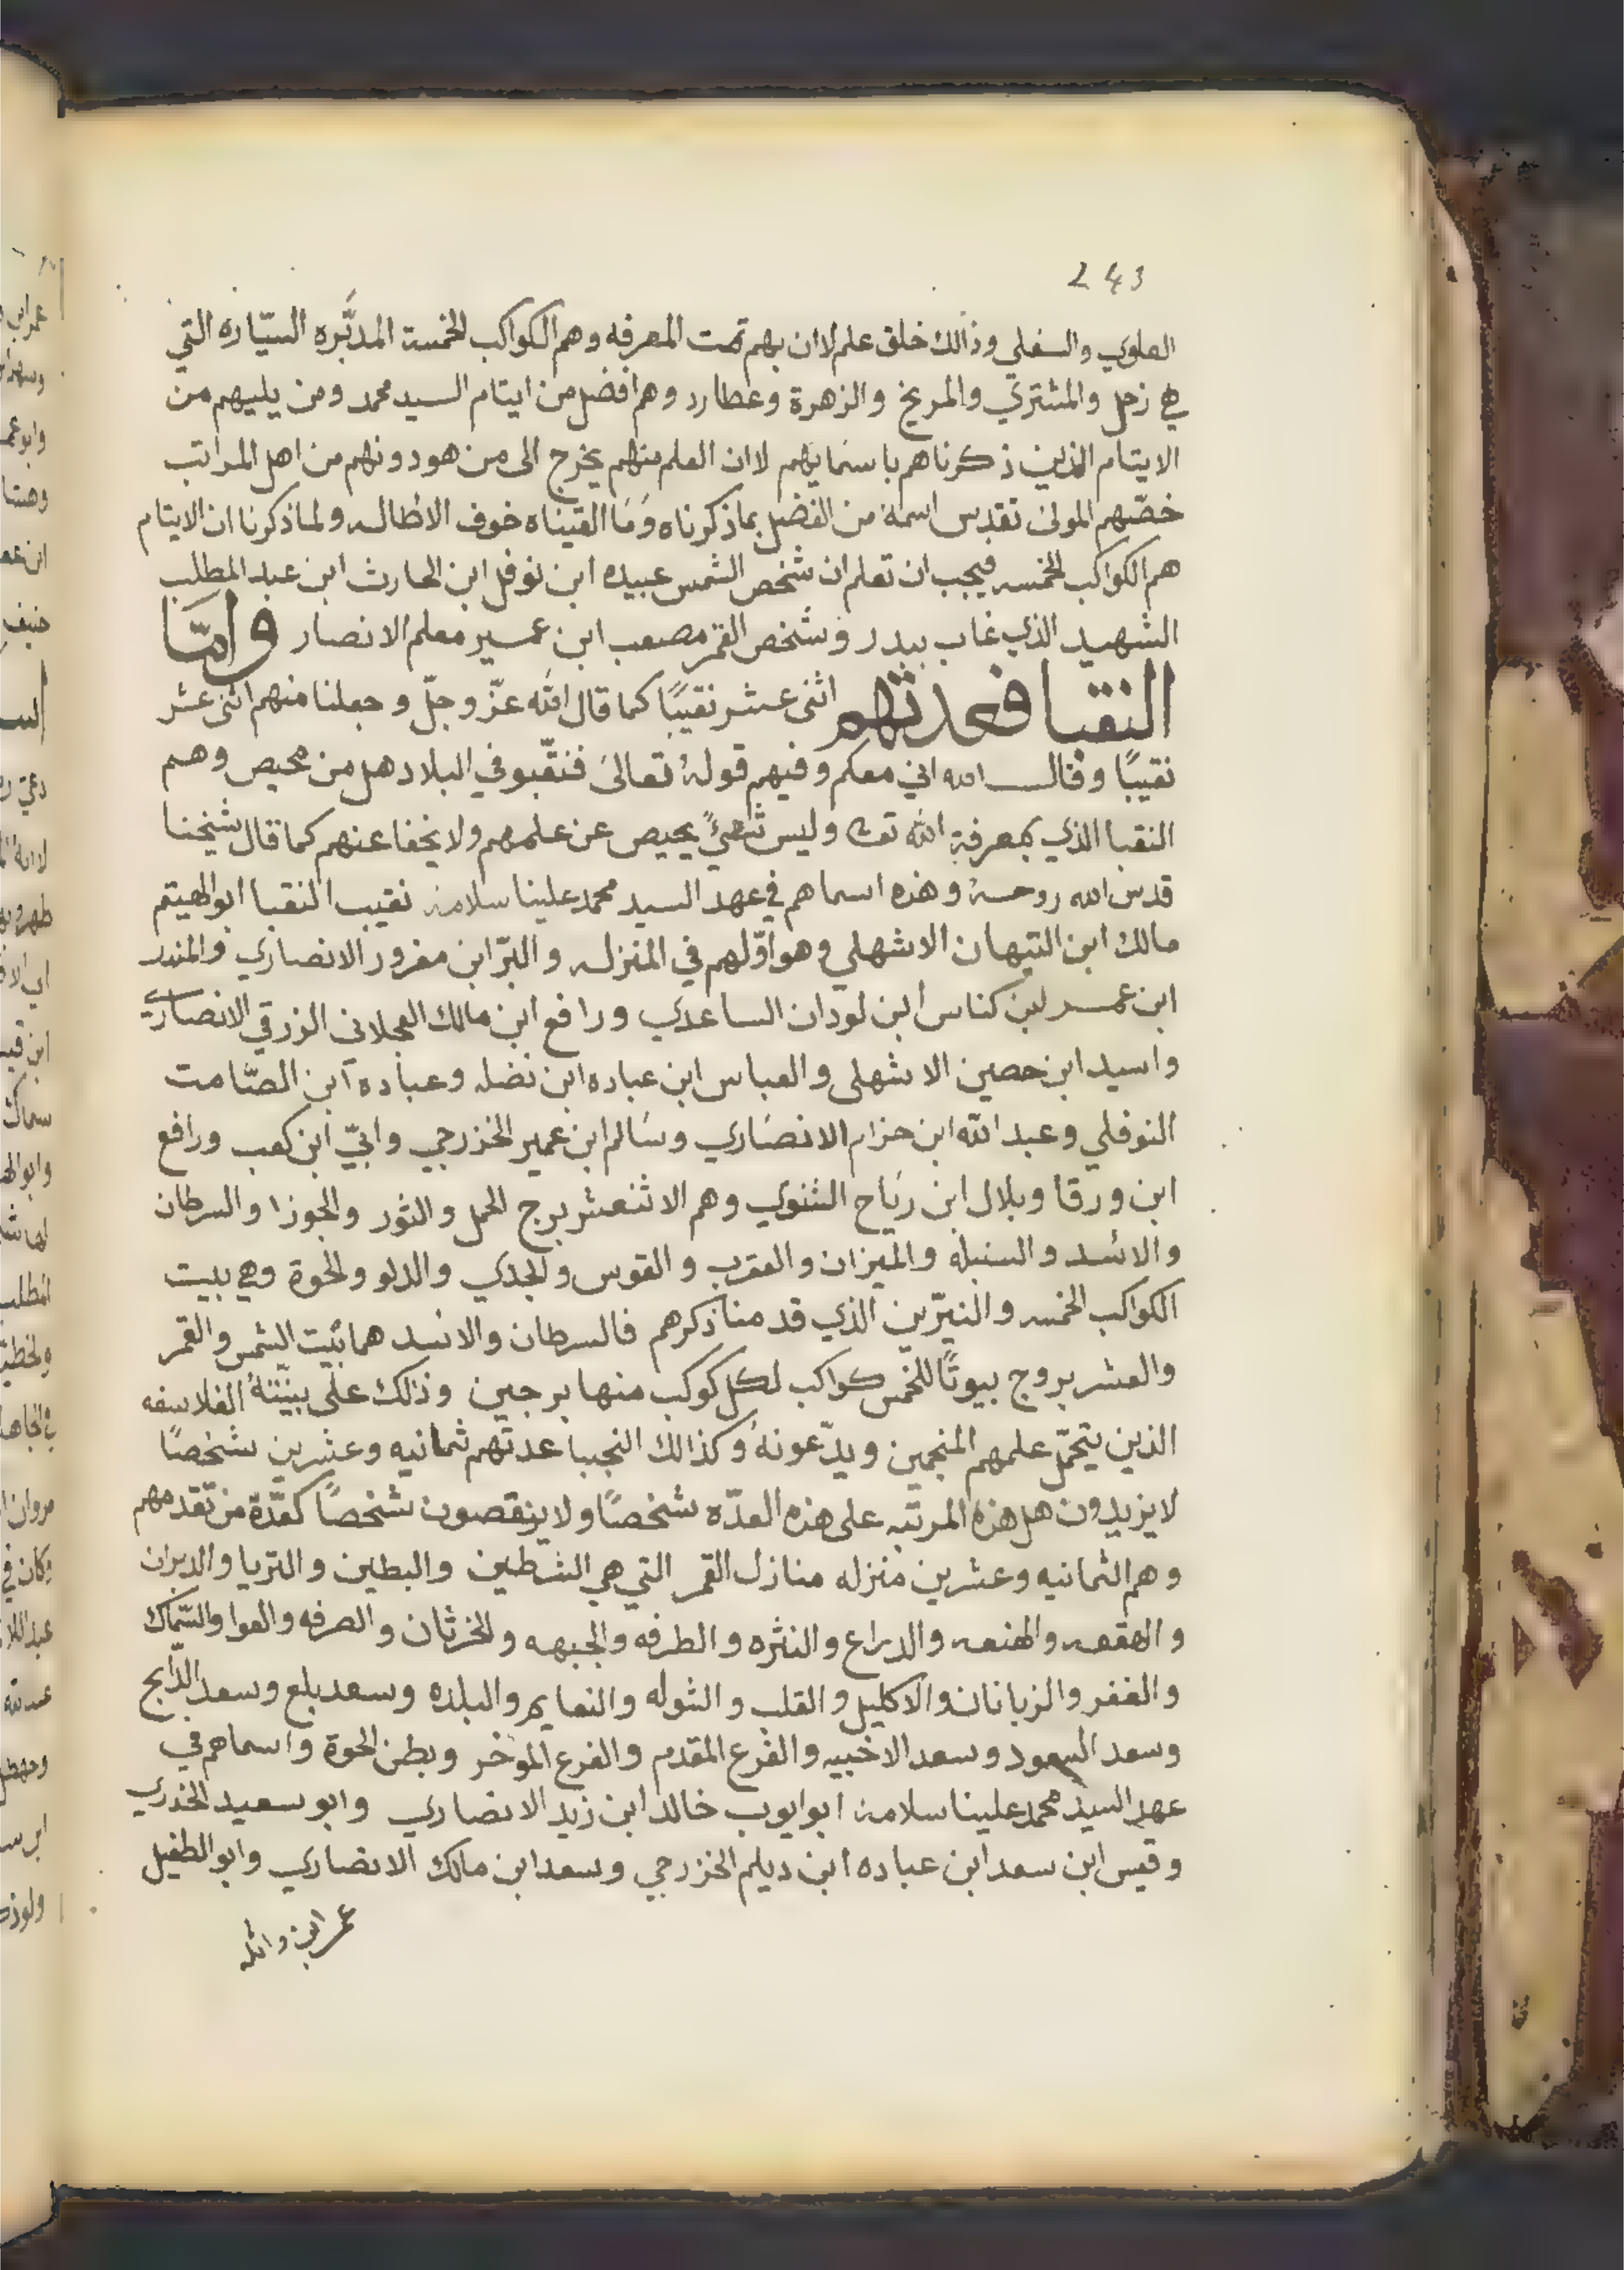 243
العلوي والسفلي وذالك خلق علم لاان بهم تمت المعرفه وهم الكواكب الخمسة المدبّره السيّاره التي
هي زحل والمشتري والمريخ والزهرة وعطارد وهم افضل من ايتام السيد محمد ومن يليهم من
الايتام الذين ذكرناهم باسمايهم لاان العلم منهم يخرج الى من هو دونهم من اهل المراتب
خصّهم المولى تقدس اسمهُ من الفضل بما ذكرناه وَمَا القيناه خوف الاطاله ولما ذكرنا ان الايتام
هم الكواكب الخمسه فيجب ان تعلم ان شخص الشمس عبيده ابن نوفل ابن الحارث ابن عبد المطلب
الشهيد الذي غاب ببدر وشخص القمر مصعب ابن عمير معلم الانصار وامّا
النقبا فعدتهم اثنى عشر نقيبًا كما قال الله عزّ وجلّ وجعلنا منهم اثنى عشر
نقيبًا وقال الله اني معكم وفيهم قولهُ تعالىَ فنقّبو في البلاد هل من محيص وهم
النقبا الذي بمعرفة الله تعا وليس شيءً يحيص عن علمهم ولا يخفا عنهم كما قال شيخنا
قدس الله روحهُ وهذه اسماهم في عهد السيد محمد علينا سلامهُ نقيب النقبا ابو الهيتم
مالك ابن التيهان الاشهلي وهو اوّلهم في المنزله والبرّ ابن مغرور الانصاري والمندر
ابن عمر ابن كناس ابن لودان الساعدي ورافع ابن مالك العجلانى الزرقي الانصاري
واسيد ابن حصين الاشهلى والعباس ابن عباده ابن نضله وعباده ابن الصّامت
النوفلي وعبد الله ابن حزام الانصَاري وسَالم ابن عمير الخزرجي وابيّ ابن كعب ورافع
ابن ورقا وبلال ابن رَبَاح الشنوي وهم الاثنعشر برج الحمل والثور والجوزا والسرطان
والاسد والسنبله والميزان والعقرب والقوس والجدي والدلو والحوة وهي بييت
الكواكب الخمسه والنيّرين الذي قد منا ذكرهم فالسرطان والاسد هما بَيت الشمس والقمر
والعشر بروج بيوتًا للخمس كواكب لكل كوكب منها برجين وذالك على بينتهُ الفلاسفه
الذين يتحمّل علمهم المنجمين ويدّعونهُ وكذالك النجبا عدتهم ثمانيه وعشرين شخصًا
لا يزيدون هل هذه المرتبه على هذه العدّه شخصًا ولا ينقصون شخصًا كعدّة من تقدمهم
وهم الثمانيه وعشرين منزله منازل القمر التي هي الشرطين والبطين والتريا والدبران
والهقعه والهنعه والدراع والنثره والطرفه والجبهه والخرثان والصرفه والعوا والسّماك
والغفر والزبانان والاكليل والقلب والشوله والنعايم والبلده وسعد بلع وسعد الذّابح
وسعد السعود وسعد الاخبيه والفرع المقدم والفرع المؤخر وبطن الحوة واسماهم في
عهد السيد محمد علينا سلامهُ ابو ايوب خالد ابن زيد الانصاري وابو سعيد الخدري
وقيس ابن سعد ابن عباده ابن ديلم الخزرجي وسعد ابن مالك الانصاري وابو الطفيل
عمر ابن واثله